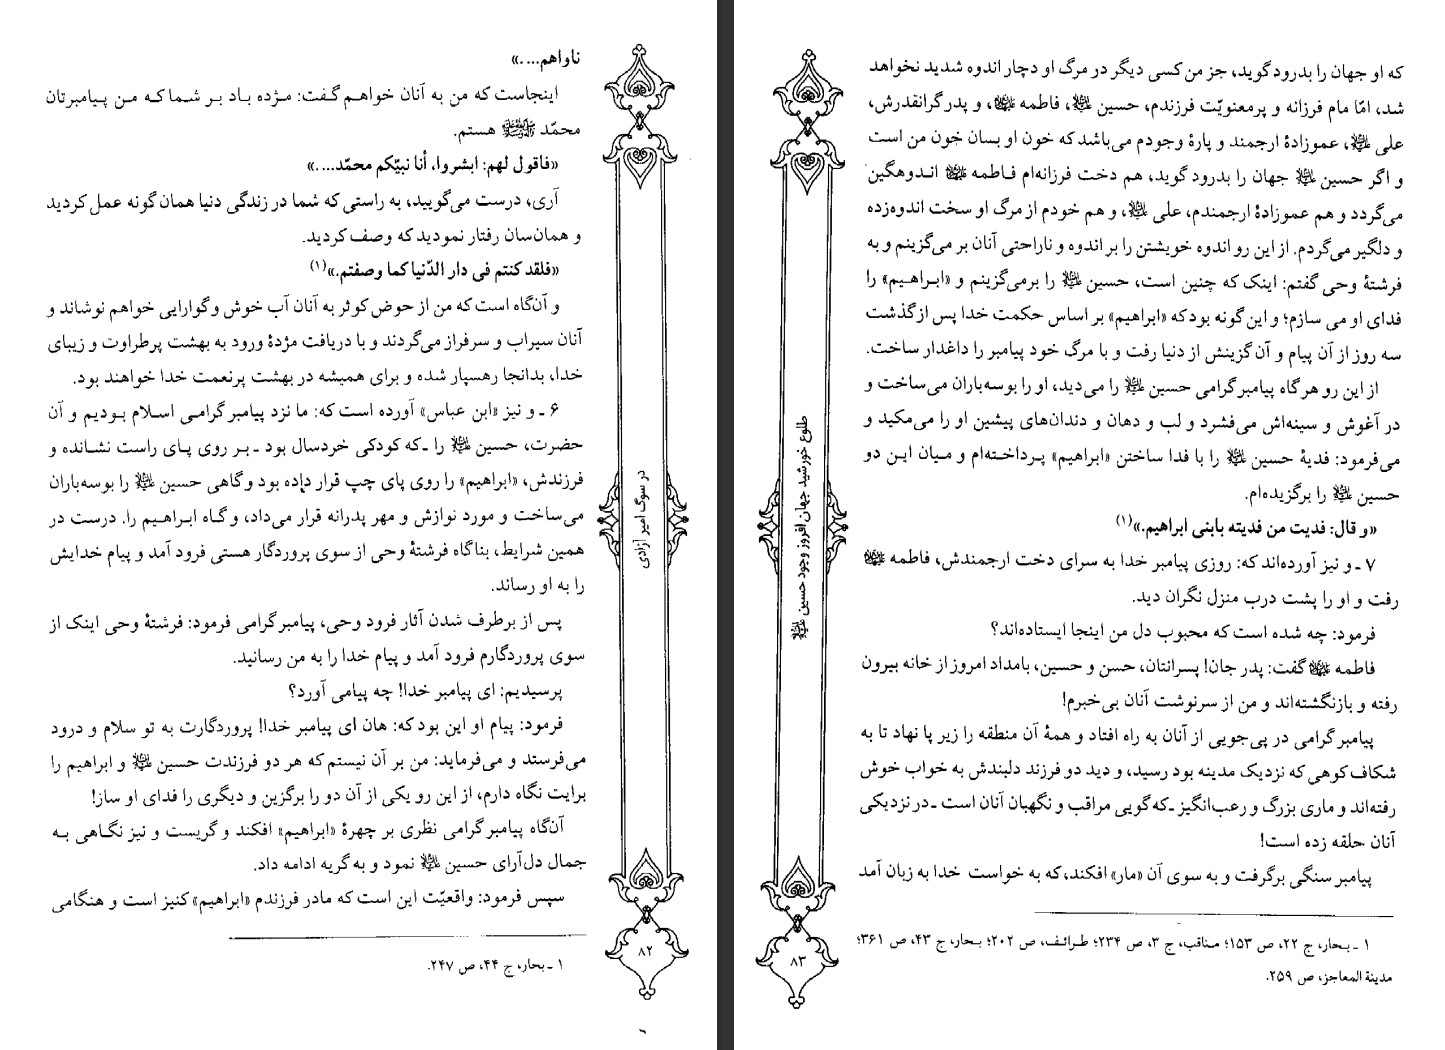 ناواهم....»
اینجاست که من به آنان خواهم گفت: مژده باد بر شما که من پیامبرتان
محمّد ﷺ هستم.
«فاقول لهم: ابشروا، أنا نبیّکم محمّد....»
آری، درست می‌گویید، به راستی که شما در زندگی دنیا همان گونه عمل کردید
و همان‌سان رفتار نمودید که وصف کردید.
«فلقد کنتم فی دار الدّنیا کما وصفتم.»(۱)
و آن‌گاه است که من از حوض کوثر به آنان آب خوش و گوارایی خواهم نوشاند و
آنان سیراب و سرفراز می‌گردند و با دریافت مژدهٔ ورود به بهشت پرطراوت و زیبای
خدا، بدانجا رهسپار شده و برای همیشه در بهشت پرنعمت خدا خواهند بود.
۶ ـ و نیز «ابن عباس» آورده است که: ما نزد پیامبر گرامی اسلام بودیم و آن
حضرت، حسین علیه‌السلام را ـ که کودکی خردسال بود ـ بر روی پای راست نشانده و
فرزندش، «ابراهیم» را روی پای چپ قرار داده بود و گاهی حسین علیه‌السلام را بوسه‌باران
می‌ساخت و مورد نوازش و مهر پدرانه قرار می‌داد، و گاه ابراهیم را. درست در
همین شرایط، بناگاه فرشتهٔ وحی از سوی پروردگار هستی فرود آمد و پیام خدایش
را به او رساند.
پس از برطرف شدن آثار فرود وحی، پیامبر گرامی فرمود: فرشتهٔ وحی اینک از
سوی پروردگارم فرود آمد و پیام خدا را به من رسانید.
پرسیدیم: ای پیامبر خدا! چه پیامی آورد؟
فرمود: پیام او این بود که: هان ای پیامبر خدا! پروردگارت به تو سلام و درود
می‌فرستد و می‌فرماید: من بر آن نیستم که هر دو فرزندت حسین علیه‌السلام و ابراهیم را
برایت نگاه دارم، از این رو یکی از آن دو را برگزین و دیگری را فدای او ساز!
آن‌گاه پیامبر گرامی نظری بر چهرهٔ «ابراهیم» افکند و گریست و نیز نگاهی به
جمال دل‌آرای حسین علیه‌السلام نمود و به گریه ادامه داد.
سپس فرمود: واقعیّت این است که مادر فرزندم «ابراهیم» کنیز است و هنگامی
۱ ـ بحار، ج ۴۴، ص ۲۴۷.
در سوگ امیر آزادی
۸۲
که او جهان را بدرود گوید، جز من کسی دیگر در مرگ او دچار اندوه شدید نخواهد
شد، امّا مام فرزانه و پرمعنویّت فرزندم، حسین علیه‌السلام، فاطمه علیهاالسلام، و پدر گرانقدرش،
علی علیه‌السلام، عموزادهٔ ارجمند و پارهٔ وجودم می‌باشد که خون او بسان خون من است
و اگر حسین علیه‌السلام جهان را بدرود گوید، هم دخت فرزانه‌ام فاطمه علیهاالسلام اندوهگین
می‌گردد و هم عموزادهٔ ارجمندم، علی علیه‌السلام، و هم خودم از مرگ او سخت اندوه‌زده
و دلگیر می‌گردم. از این رو اندوه خویشتن را بر اندوه و ناراحتی آنان بر می‌گزینم و به
فرشتهٔ وحی گفتم: اینک که چنین است، حسین علیه‌السلام را برمی‌گزینم و «ابراهیم» را
فدای او می سازم؛ و این گونه بود که «ابراهیم» بر اساس حکمت خدا پس از گذشت
سه روز از آن پیام و آن گزینش از دنیا رفت و با مرگ خود پیامبر را داغدار ساخت.
از این رو هرگاه پیامبر گرامی حسین علیه‌السلام را می‌دید، او را بوسه‌باران می‌ساخت و
در آغوش و سینه‌اش می‌فشرد و لب و دهان و دندان‌های پیشین او را می‌مکید و
می‌فرمود: فدیهٔ حسین علیه‌السلام را با فدا ساختن «ابراهیم» پرداخته‌ام و میان این دو
حسین علیه‌السلام را برگزیده‌ام.
«و قال: فدیت من فدیته بابنی ابراهیم.»(۱)
۷ ـ و نیز آورده‌اند که: روزی پیامبر خدا به سرای دخت ارجمندش، فاطمه علیهاالسلام
رفت و او را پشت درب منزل نگران دید.
فرمود: چه شده است که محبوب دل من اینجا ایستاده‌اند؟
فاطمه علیهاالسلام گفت: پدر جان! پسرانتان، حسن و حسین، بامداد امروز از خانه بیرون
رفته و بازنگشته‌اند و من از سرنوشت آنان بی‌خبرم!
پیامبر گرامی در پی‌جویی از آنان به راه افتاد و همهٔ آن منطقه را زیر پا نهاد تا به
شکاف کوهی که نزدیک مدینه بود رسید، و دید دو فرزند دلبندش به خواب خوش
رفته‌اند و ماری بزرگ و رعب‌انگیز ـ که گویی مراقب و نگهبان آنان است ـ در نزدیکی
آنان حلقه زده است!
پیامبر سنگی برگرفت و به سوی آن «مار» افکند، که به خواست خدا به زبان آمد
۱ ـ بحار، ج ۲۲، ص ۱۵۳؛ مناقب، ج ۳، ص ۲۳۴؛ طرائف، ص ۲۰۲؛ بحار، ج ۴۳، ص ۳۶۱؛
مدینة المعاجز، ص ۲۵۹.
طلوع خورشید جهان افروز وجود حسین علیه‌السلام
۸۳